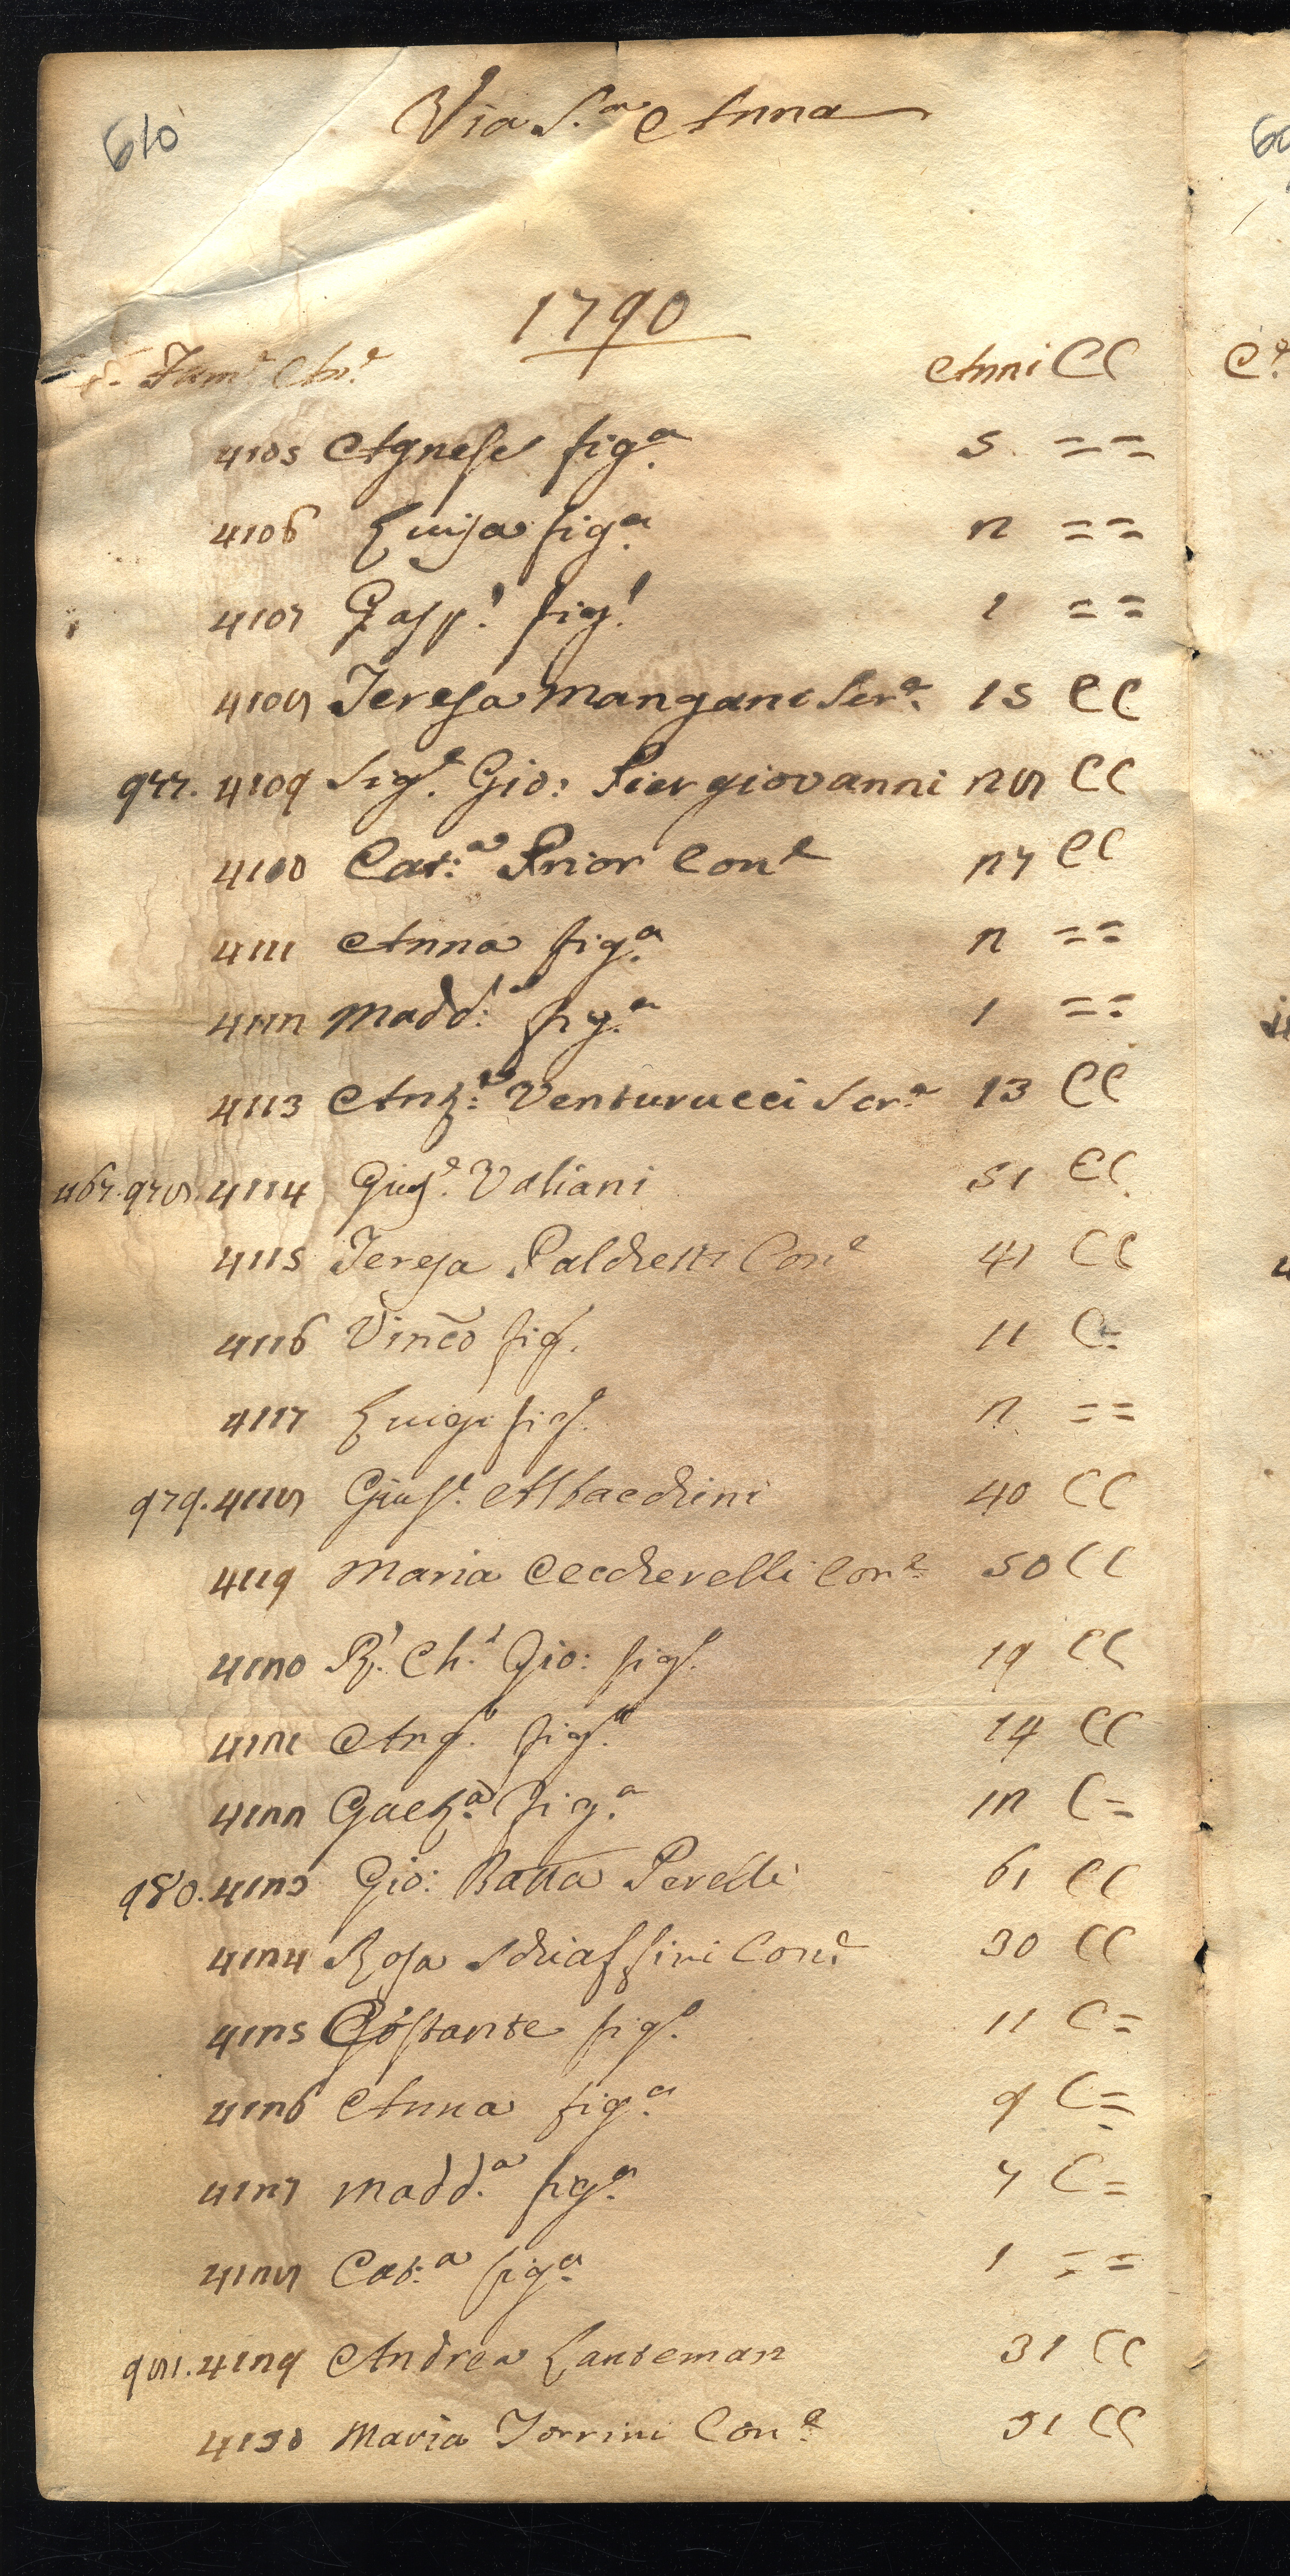 610
Via S.ª Anna
1790
Fam.e An.e Anni CC
4105 Agnese fig.ª 5 = =
4106 Luisa fig.ª 2 = =
4107 Gasp.e fig.e 1 = =
4108 Teresa Mangani Ser.ª 15 CC
977. 4109 Sig.e Gio: Piergiovanni 28 CC
4110 Cat:ª Prior Con.e 27 CC
4111 Anna fig.ª 2 = =
4112 Madd:ª fig.ª 1 = =
4113 Anz:ª Venturucci Ser.ª 13 CC
467. 978. 4114 Gius.e Valiani 51 CC
4115 Teresa Palchetti Con.e 41 CC
4116 Vinco fig. 11 C=
4117 Luigi fig.o 2 = =
979. 4118 Gius.e Albacchini 40 CC
4119 Maria Ceccherelli Con.e 50 CC
4120 R. Ch.o Gio: fig.o 19 CC
4121 Ang.o fig.o 14 CC
4122 Gaet.ª fig.ª 12 C=
980. 4123 Gio: Batta Perelli 61 CC
4124 Rosa Schiaffini Con.e 30 CC
4125 Costante fig.o 11 C=
4126 Anna fig.ª 9 C=
4127 Madd.ª fig.ª 7 C=
4128 Cat:ª fig.ª 1 = =
981. 4129 Andrea Lanteman 31 CC
4130 Maria Torrini Con.e 31 CC